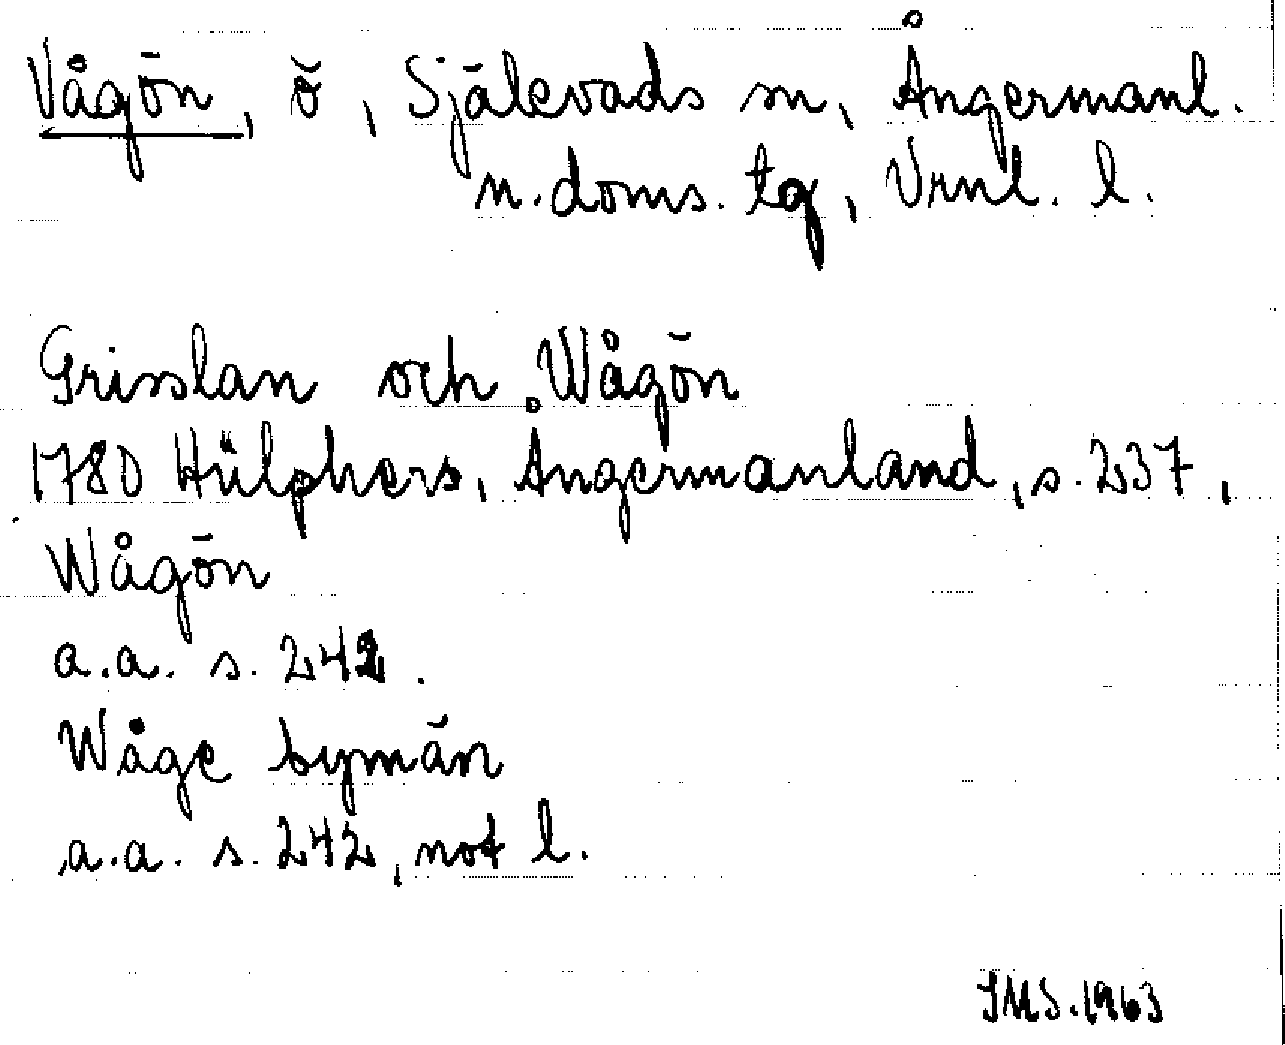 Vågön, ö, Själevads sn, Ångermanl.
n. doms. tg, Vrnl. l.
Grisslan och Wågön
1780 Hülphers, Ångermanland, s. 237,
Wågön
a.a. s. 242.
Wåge bymän
a.a. s. 242, not l.
IMS. 1963